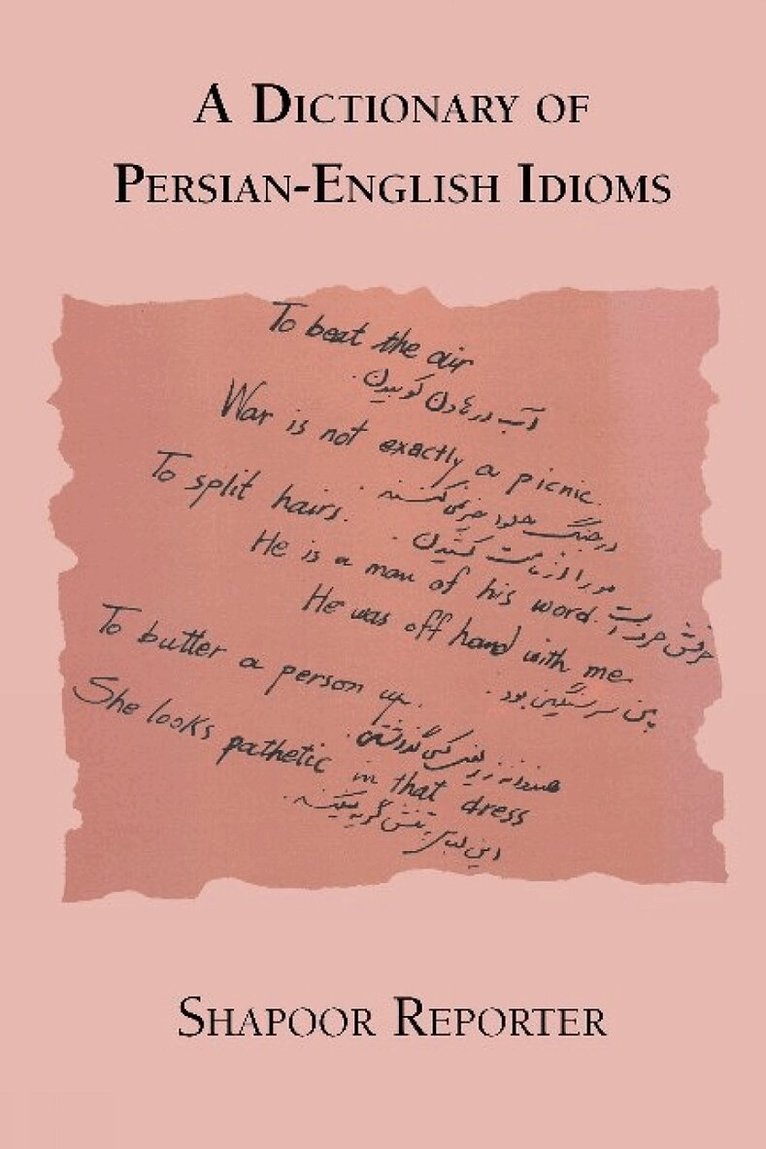 A Dictionary of
Persian-English Idioms
To beat the air
آب در هاون کوبیدن.
War is not exactly a picnic.
در جنگ حلوا خیر نمی‌کنند.
To split hairs.
مو را از ماست کشیدن.
He is a man of his word.
حرفش حرف است
He was off hand with me
بمن سرسنگین بود.
To butter a person up.
هندوانه زیر بغل کسی گذاشتن.
She looks pathetic in that dress
این لباس به تنش گریه میکند.
Shapoor Reporter